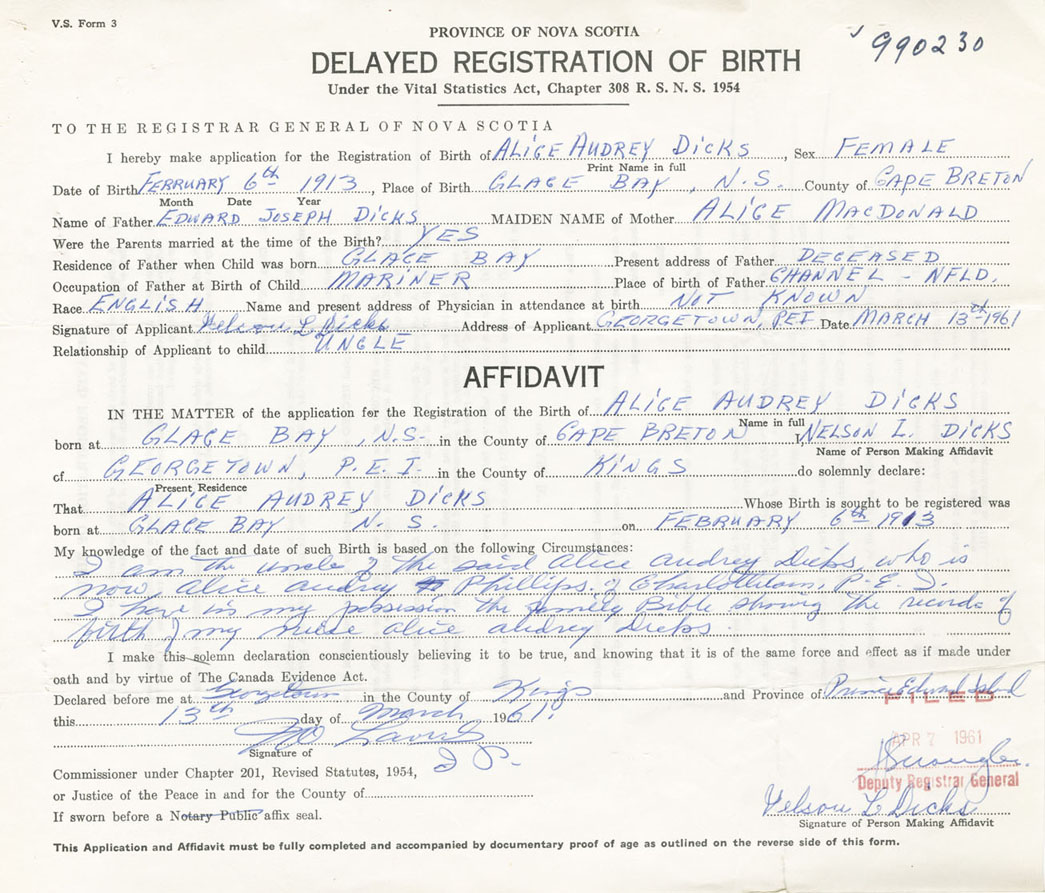 V.S. Form 3
PROVINCE OF NOVA SCOTIA
990230
DELAYED REGISTRATION OF BIRTH
Under the Vital Statistics Act, Chapter 308 R. S. N. S. 1954
TO THE REGISTRAR GENERAL OF NOVA SCOTIA
I hereby make application for the Registration of Birth of ALICE AUDREY DICKS, Sex FEMALE
Print Name in full
Date of Birth FEBRUARY 6th 1913, Place of Birth GLACE BAY, N.S. County of CAPE BRETON
Month Date Year
Name of Father EDWARD JOSEPH DICKS MAIDEN NAME of Mother ALICE MACDONALD
Were the Parents married at the time of the Birth? YES
Residence of Father when Child was born GLACE BAY Present address of Father DECEASED
Occupation of Father at Birth of Child MARINER Place of birth of Father CHANNEL - NFLD.
Race ENGLISH Name and present address of Physician in attendance at birth NOT KNOWN
Signature of Applicant Nelson L Dicks Address of Applicant GEORGETOWN, PEI Date MARCH 13th 1961
Relationship of Applicant to child UNCLE
AFFIDAVIT
IN THE MATTER of the application for the Registration of the Birth of ALICE AUDREY DICKS
Name in full
born at GLACE BAY, N.S. in the County of CAPE BRETON I, NELSON L. DICKS
Name of Person Making Affidavit
of GEORGETOWN, P.E.I. in the County of KINGS do solemnly declare:
Present Residence
That ALICE AUDREY DICKS Whose Birth is sought to be registered was
born at GLACE BAY N. S. on FEBRUARY 6th 1913
My knowledge of the fact and date of such Birth is based on the following Circumstances:
I am the uncle of the said Alice Audrey Dicks, who is
now Alice Audrey Phillips of Charlottetown, P.E.I.
I have in my possession the family Bible showing the records of
birth of my niese Alice Audrey Dicks.
I make this solemn declaration conscientiously believing it to be true, and knowing that it is of the same force and effect as if made under
oath and by virtue of The Canada Evidence Act.
Declared before me at Georgetown in the County of Kings and Province of Prince Edward Island
FILED
this 13th day of March 1961.
APR 7 1961
Signature of
J P.
Commissioner under Chapter 201, Revised Statutes, 1954,
Deputy Registrar General
or Justice of the Peace in and for the County of
Nelson L Dicks
If sworn before a Notary Public affix seal.
Signature of Person Making Affidavit
This Application and Affidavit must be fully completed and accompanied by documentary proof of age as outlined on the reverse side of this form.